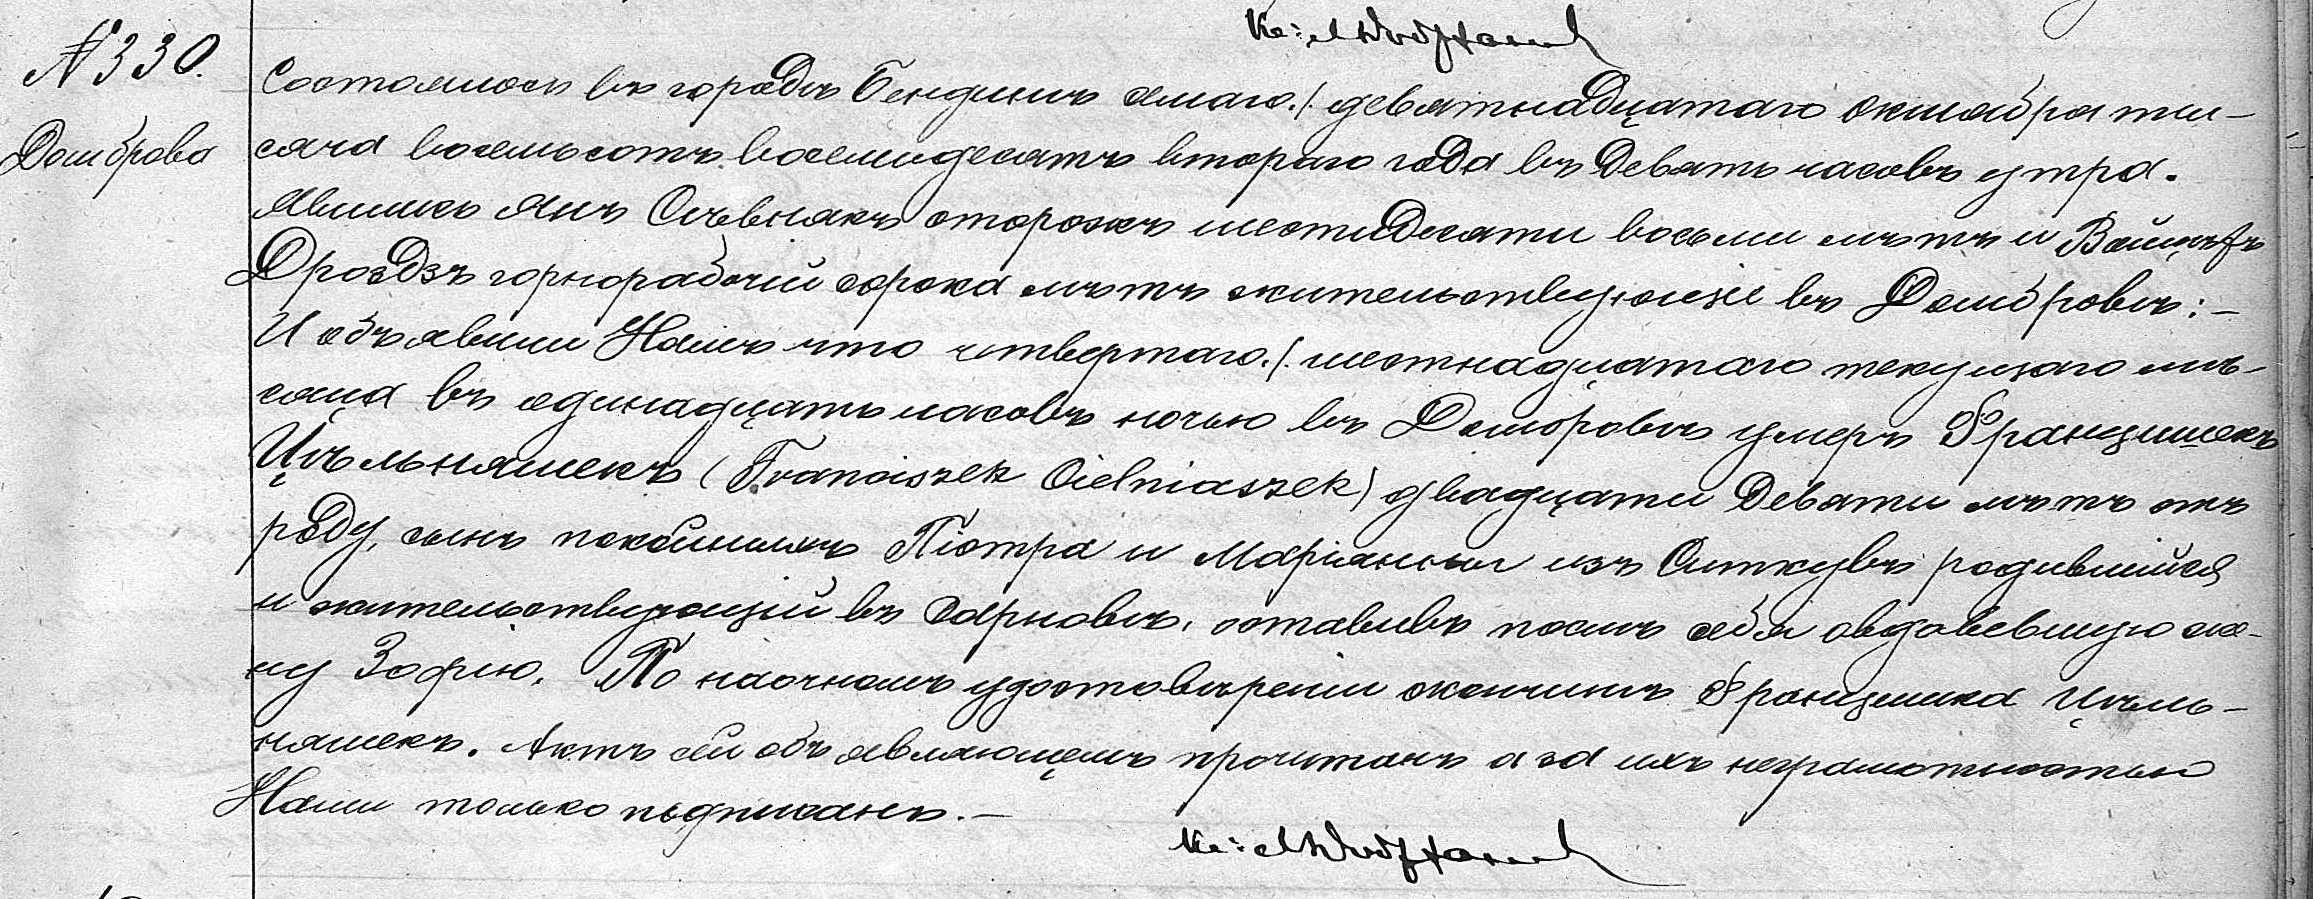 № 330.
Домброва
Состоялось въ городѣ Бендинѣ седьмаго./. девятнадцатаго октября ты-
сяча восемьсотъ восемидесятъ втораго года въ девять часовъ утра.
Явились Янъ сторожъ шестидесяти восьми лѣтъ и Войцѣхъ
Дроздзъ горнорабочій сорока лѣтъ жительствующіе въ Домбровѣ:-
И объявили Намъ что четвертаго./. шестнадцатаго текущаго мѣ-
сяца въ одинадцать часовъ ночью въ Домбровѣ умеръ Францишекъ
Цѣльняшекъ (Franciszek Cielniaszek) двадцати девяти лѣтъ отъ
роду, сынъ покойныхъ Піотра и Маріянны изъ Ситкувъ родившійся
и жительствующій въ Сарновѣ, оставивъ послѣ себя овдовевшую же-
ну Зофію. По наочномъ удостовѣреніи о кончинѣ Францишка Цѣль-
няшекъ. Актъ сей объявляющемъ прочитанъ а за ихъ неграмотностью
Нами только подписанъ.-